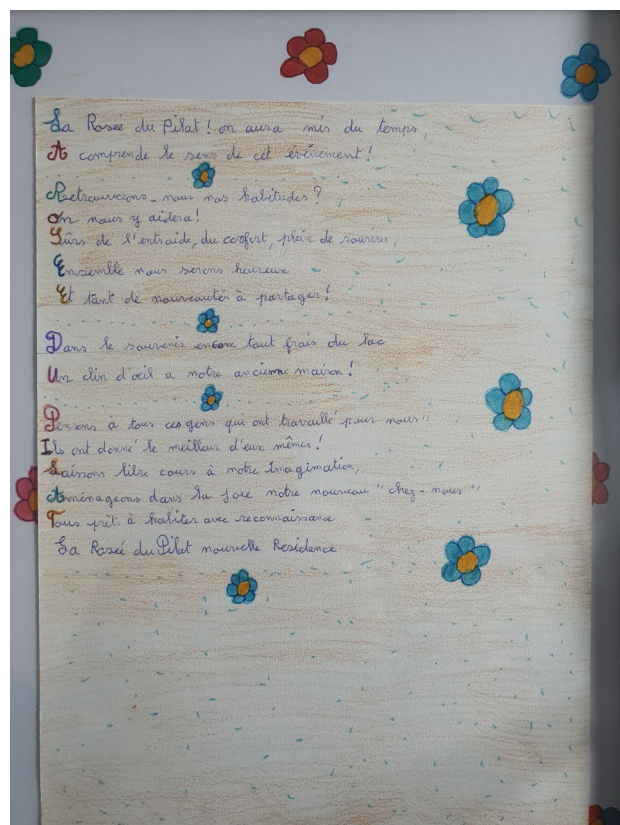 La Rosée du Pilat ! on aura mis du temps,
A comprendre le sens de cet événement !
Retrouverons-nous nos habitudes ?
On nous y aidera !
Sûrs de l'entraide, du confort, plein de sourires,
Ensemble nous serons heureux
Et tant de nouveautés à partager !
Dans le souvenir encore tout frais du lac
Un clin d'oeil a notre ancienne maison !
Pensons à tous ces gens qui ont travaillé pour nous
Ils ont donné le meilleur d'eux mêmes !
Laissons libre cours à notre imagination,
Aménageons dans la joie notre nouveau "chez-nous"
Tous prêt à habiter avec reconnaissance
La Rosée du Pilat nouvelle Residence